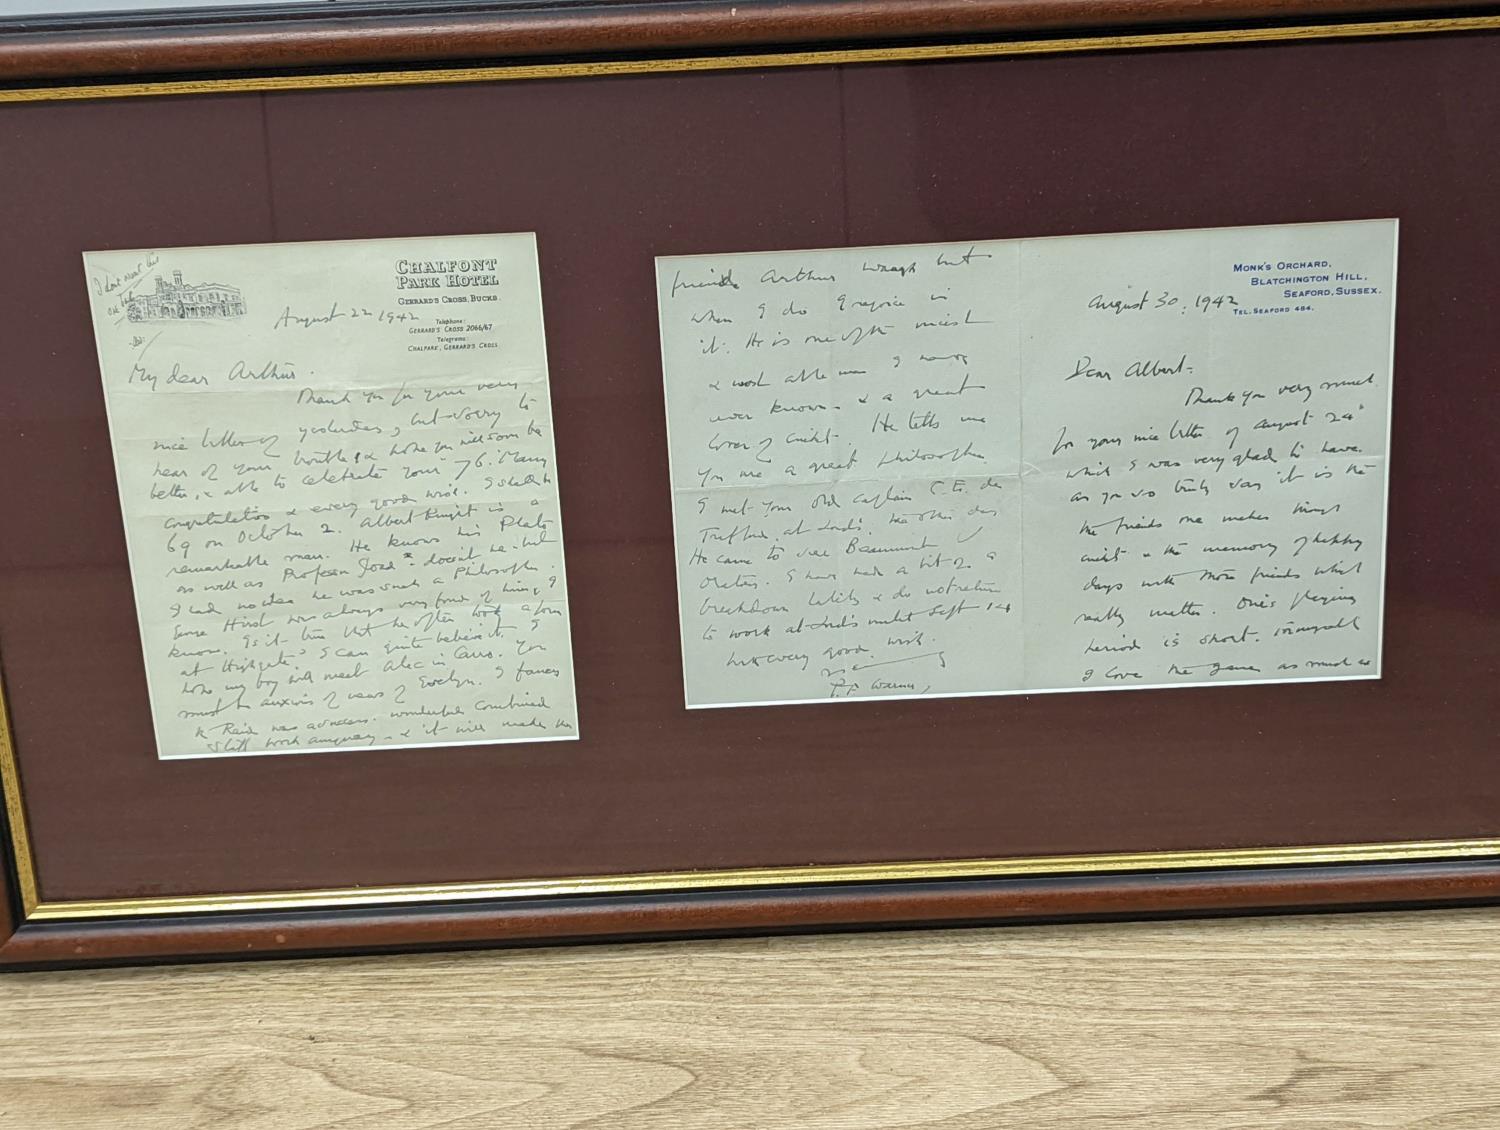 I don't want this
CHALFONT
PARK HOTEL
GERRARD'S CROSS, BUCKS.
Telephone:
GERRARD'S CROSS 2066/67
Telegrams:
CHALPARK, GERRARD'S CROSS.
August 22 1942
My dear Arthur.
Thank you for your very
nice letter of yesterday, but sorry to
hear of your trouble & hope you will soon be
better, & able to celebrate your 76. Many
congratulations & every good wish. I shall be
69 on October 2. Albert Knight is a
remarkable man. He knows his Plato
as well as Professor Joad doesn't he - but
I had no idea he was such a Philosopher.
Hirst was always very fond of him, I
know. Is it true that he often took a form
at Highgate? I can quite believe it. I
hope my boy will meet Alec in Cairo. You
must be anxious of news of Evelyn. I fancy
Raid was a wonderful Combined
Staff work anyway - & it will make the
friend Arthur Waugh but
when I do I rejoice in
it. He is one of the nicest
& most able men I have
ever known - & a great
lover of cricket. He tells me
you are a great philosopher.
I met your old Captain C.E. de
Trafford at Lord's the other day
He came to see Beaumont v
Oratory. I have had a bit of a
breakdown lately & do not return
to work at Lord's until Sept 14
With every good wish.
P.F. Warner,
MONK'S ORCHARD,
BLATCHINGTON HILL,
SEAFORD, SUSSEX.
TEL. SEAFORD 484.
August 30, 1942
Dear Albert:
Thank you very much
for your nice letter of August 24th
which I was very glad to have.
As you so truly say it is the
the friends one makes through
cricket & the memory of happy
days with those friends which
really matter. One's playing
period is short. Personally
I love the game as much as